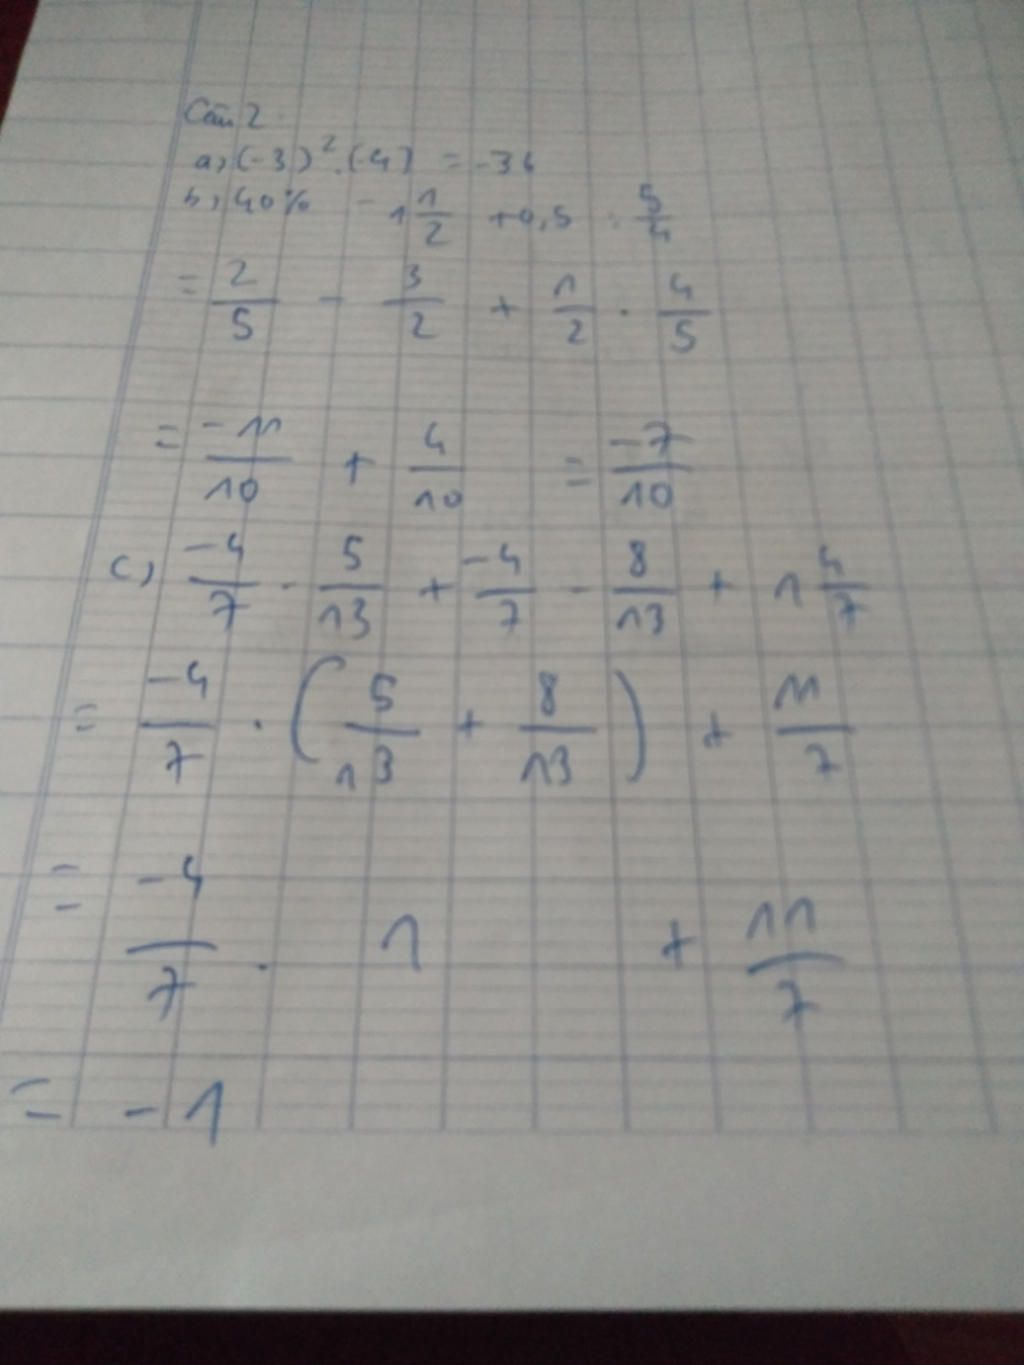 Câu 2
a, (-3)² . (-4) = -36
b, 40% - 1 1/2 + 0,5 : 5/4
= 2/5 - 3/2 + 1/2 . 4/5
= -11/10 + 4/10 = -7/10
c, -4/7 . 5/13 + -4/7 . 8/13 + 1 4/7
= -4/7 . ( 5/13 + 8/13 ) + 11/7
= -4/7 . 1 + 11/7
= - 1